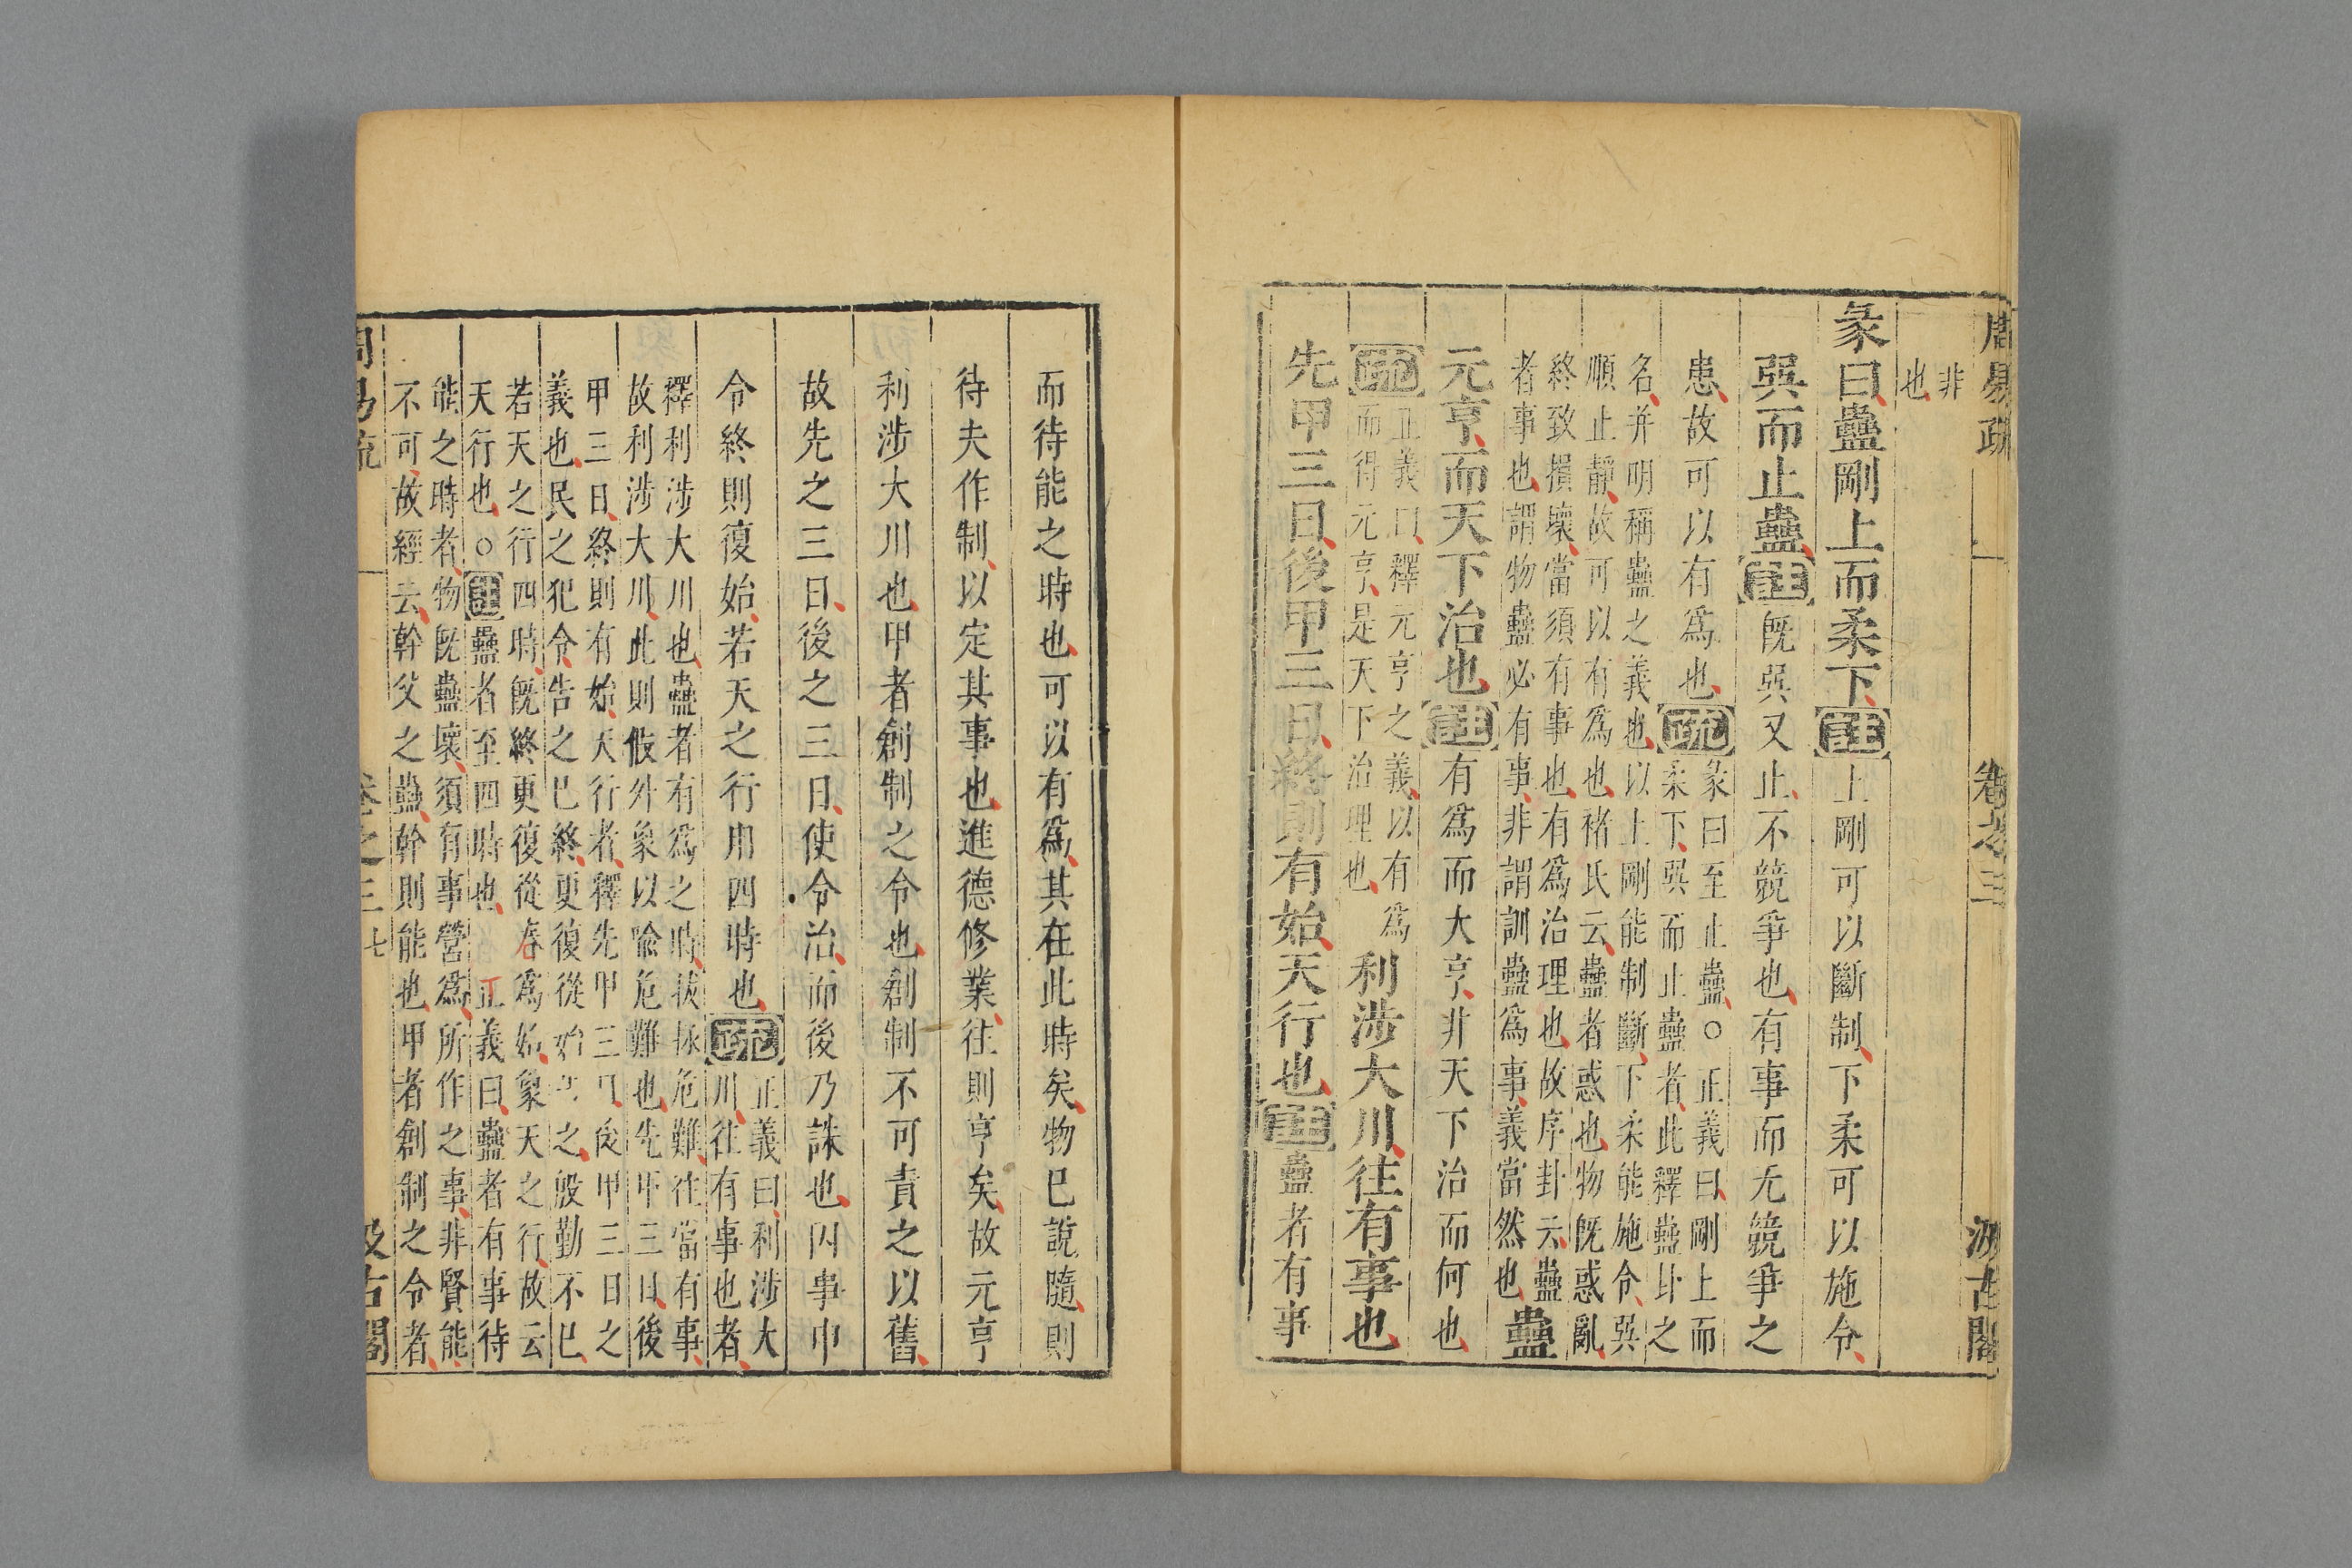 周易疏 卷之三 汲古閣
非
也
彖曰蠱剛上而柔下註上剛可以斷制下柔可以施令
巽而止蠱註既巽又止不競爭也有事而无競爭之
患故可以有爲也疏彖曰至止蠱○正義曰剛上而
柔下巽而止蠱者此釋蠱卦之
名并明稱蠱之義也以上剛能制斷下柔能施令巽
順止靜故可以有爲也褚氏云蠱者惑也物既惑亂
終致損壞當須有事也有爲治理也故序卦云蠱
者事也謂物蠱必有事非謂訓蠱爲事義當然也蠱
元亨而天下治也註有爲而大亨非天下治而何也
疏正義曰釋元亨之義以有爲
而得元亨是天下治理也利涉大川往有事也
先甲三日後甲三日終則有始天行也註蠱者有事
而待能之時也可以有爲其在此時矣物已說隨則
待夫作制以定其事也進德修業往則亨矣故元亨
利涉大川也甲者創制之令也創制不可責之以舊
故先之三日後之三日使令治而後乃誅也因事申
令終則復始若天之行用四時也疏正義曰利涉大
川往有事也者
釋利涉大川也蠱者有爲之時拔拯危難往當有事
故利涉大川此則假外象以喻危難也先甲三日後
甲三日終則有始天行者釋先甲三日後甲三日之
義也民之犯令告之已終更復從始告之殷勤不已
若天之行四時既終更復從春爲始象天之行故云
天行也○註蠱者至四時也 正義曰蠱者有事待
能之時者物既蠱壞須有事營爲所作之事非賢能
不可故經云幹父之蠱幹則能也甲者創制之令者
周易疏 卷之三 七 汲古閣